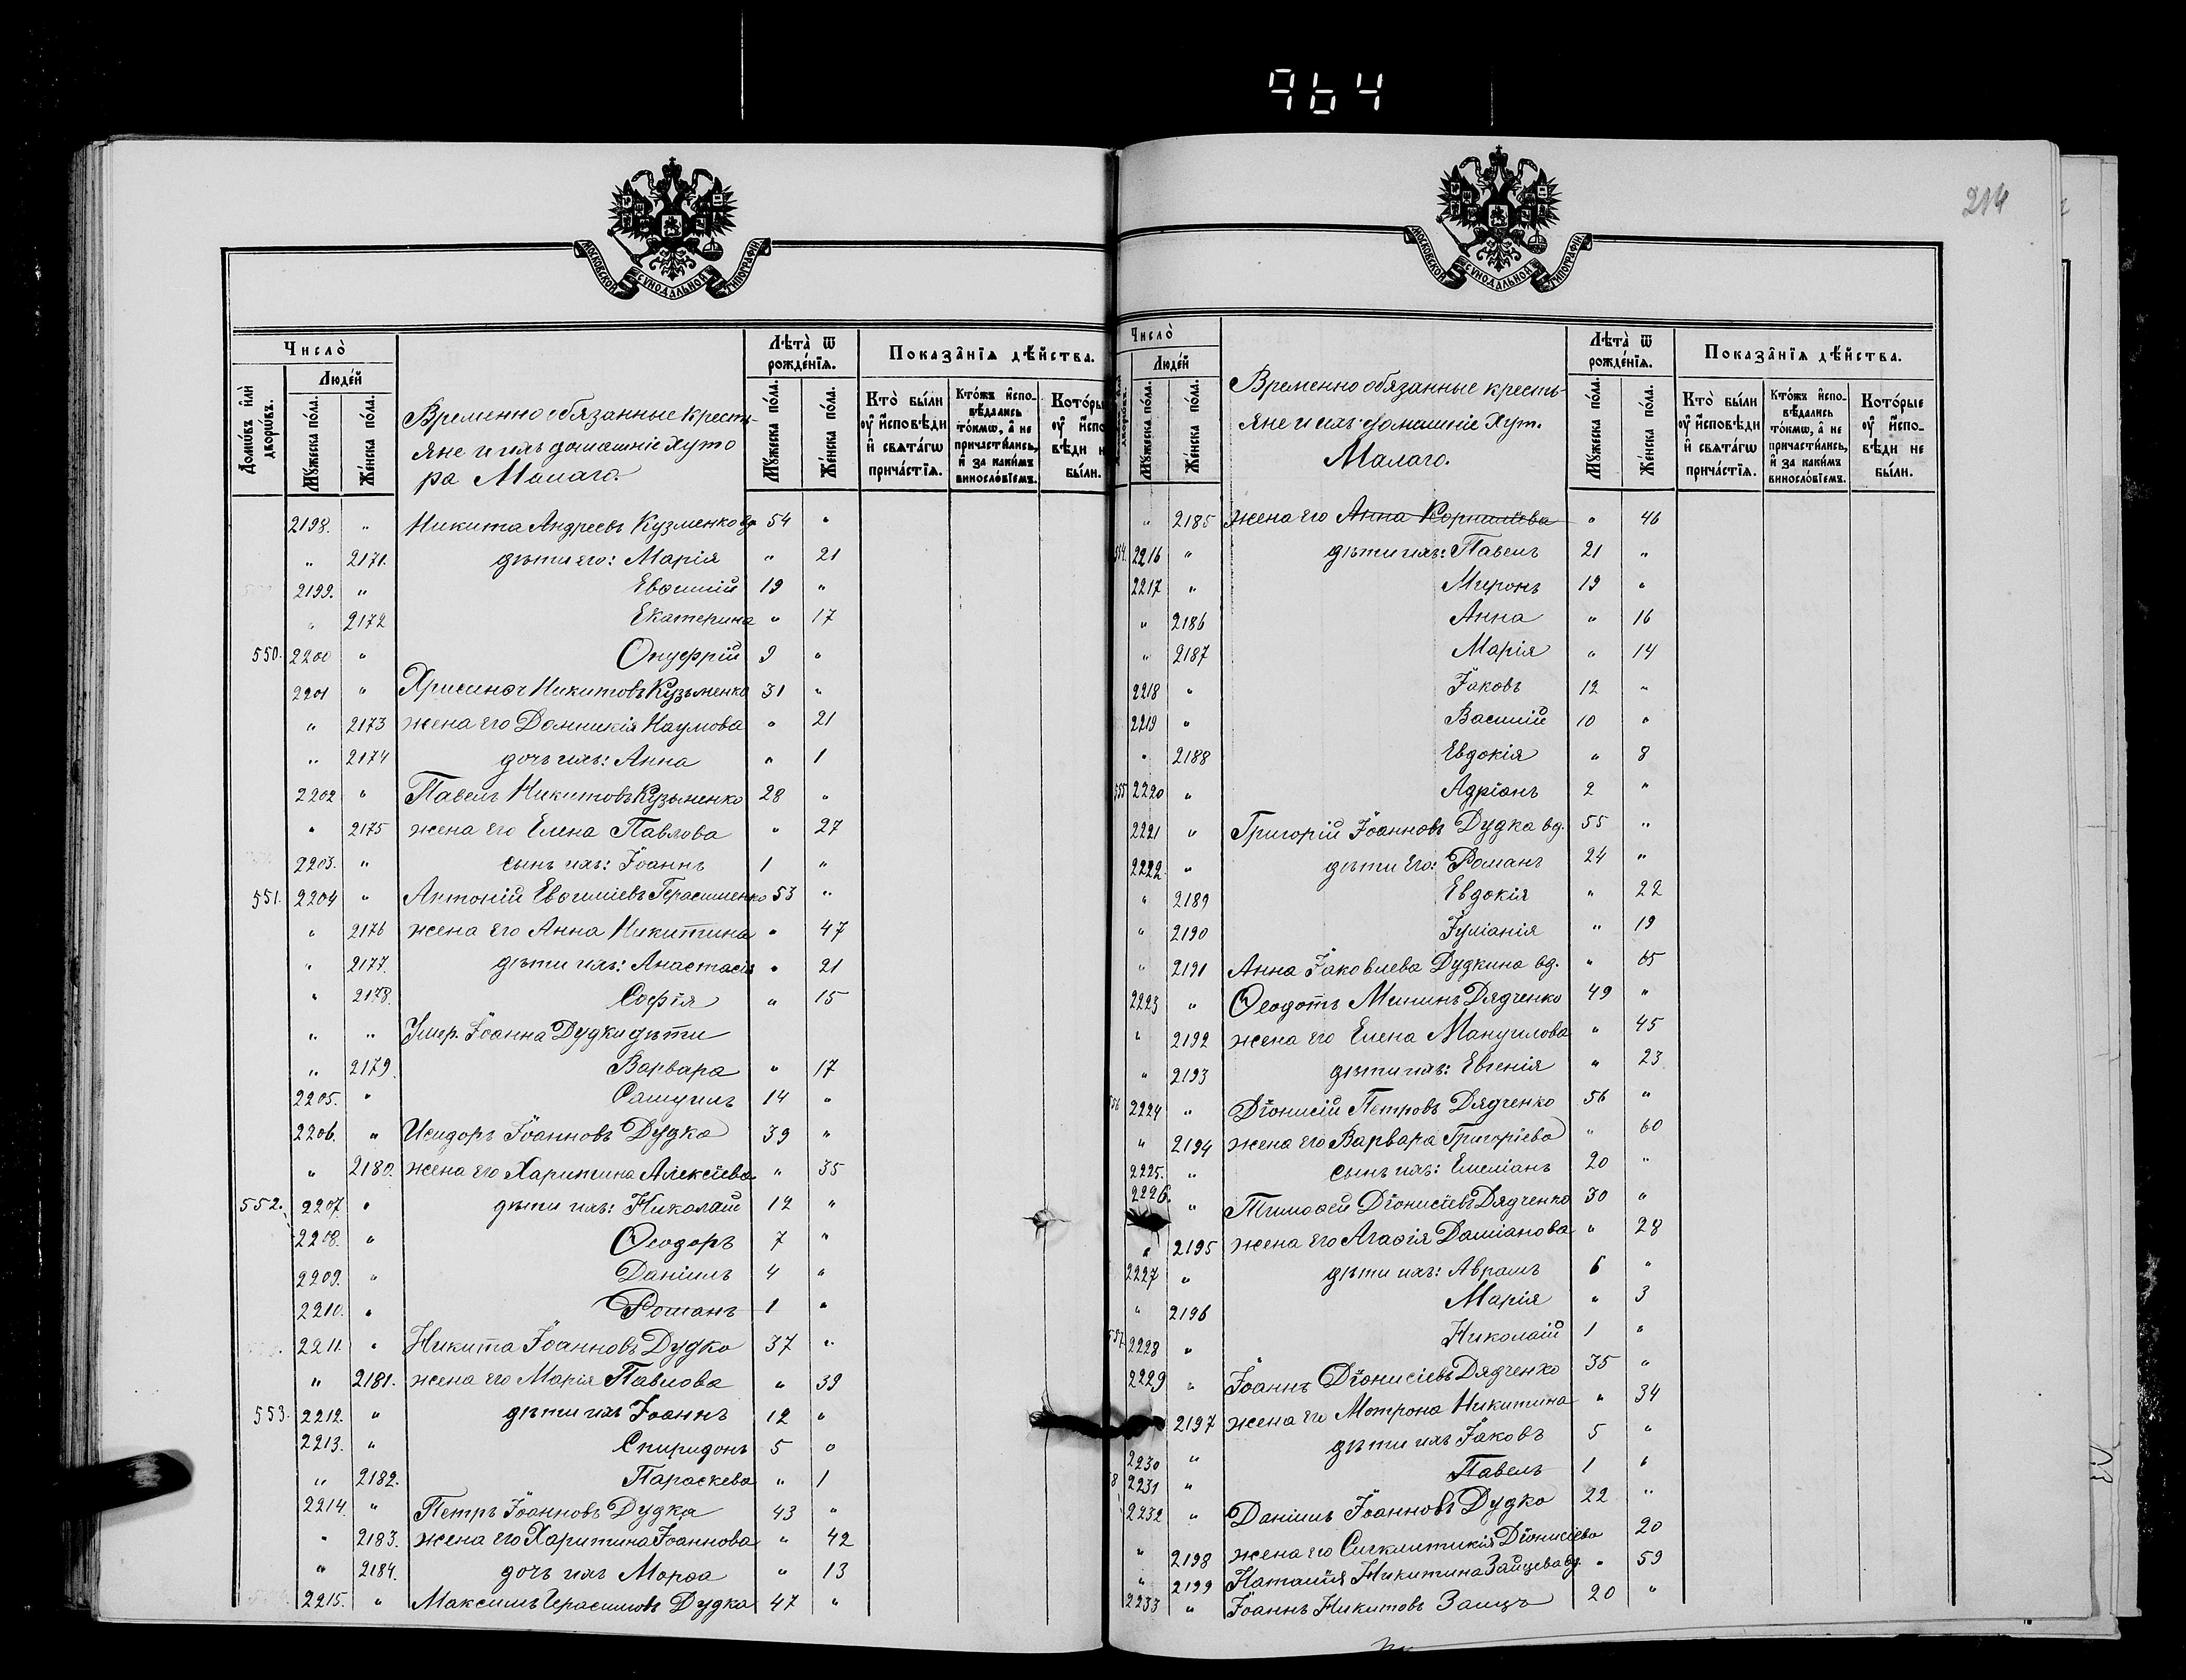 964
214
МОСКОВСКОЙ СѴНОДАЛЬНОЙ ТИПОГРАФІИ
Число̀
Домѡ́въ и҆лѝ дворѡ́въ.
Люде́й
Мꙋ́жеска по́ла.
Же́нска по́ла.
Временно обязанные кресть-
яне и ихъ домашніе хуто
ра Малаго.
Лѣта̀ ѿ рожде́нїѧ.
Мꙋ́жеска по́ла.
Же́нска по́ла.
Показа̑нїѧ дѣ́йства.
Кто̀ бы́ли ᲂу҆ и҆сповѣ́ди и҆ свѧта́гѡ прича́стїѧ.
Кто́жъ и҆спо-вѣ́дались то́кмѡ, а҆ не причасти́лись, и҆ за каки́мъ винослови́емъ.
2198. " Никита Андреевъ Кузменко вд. 54 "
" 2171. дѣти его: Марія " 21
2199. " Евѳимій 19 "
" 2172 Екатерина " 17
550. 2200 " Онуфрій 9 "
2201 " Хрисанѳ Никитовъ Кузьменко 31 "
" 2173 жена его Домникія Наумова " 21
" 2174 дочь ихъ: Анна " 1
2202 " Павелъ Никитовъ Кузьменко 28 "
" 2175 жена его Елена Павлова " 27
2203. " сынъ ихъ: Іоаннъ 1 "
551. 2204 " Антоній Евѳиміевъ Герасименко 53 "
" 2176 жена его Анна Никитина " 47
" 2177. дѣти ихъ: Анастасія " 21
" 2178. Софія " 15
" " Умер. Іоанна Дудки дѣти
" 2179. Варвара " 17
2205. " Самуилъ 14 "
2206. " Исидоръ Іоанновъ Дудка 39 "
" 2180. жена его Харитина Алексіева " 35
552. 2207. " дѣти ихъ: Николай 12 "
2208. " Ѳеодоръ 7 "
2209. " Даніилъ 4 "
2210. " Романъ 1 "
2211. " Никита Іоанновъ Дудка 37 "
" 2181. жена его Марія Павлова " 39
553. 2212. " дѣти ихъ Іоаннъ 12 "
2213. " Спиридонъ 5 "
" 2182. Параскева " 1
2214. " Петръ Іоанновъ Дудка 43 "
" 2183. жена его Харитина Іоаннова " 42
" 2184. дочь ихъ Марѳа " 13
2215. " Максимъ Герасимовъ Дудка 47 "
МОСКОВСКОЙ СѴНОДАЛЬНОЙ ТИПОГРАФІИ
Число̀
Люде́й
Мꙋ́жеска по́ла.
Же́нска по́ла.
Временно обязанные кресть-
яне и ихъ домашніе Хут.
Малаго.
Лѣта̀ ѿ рожде́нїѧ.
Мꙋ́жеска по́ла.
Же́нска по́ла.
Показа̑нїѧ дѣ́йства.
Кто̀ бы́ли ᲂу҆ и҆сповѣ́ди и҆ свѧта́гѡ прича́стїѧ.
Кто́жъ и҆спо-вѣ́дались то́кмѡ, а҆ не причасти́лись, и҆ за каки́мъ винослови́емъ.
Кото́рые ᲂу҆ и҆спо-вѣ́ди не бы́ли.
" 2185 жена его Анна Корниліева " 46
554. 2216 " дѣти ихъ: Павелъ 21 "
2217 " Миронъ 19 "
" 2186 Анна " 16
" 2187 Марія " 14
2218 " Іаковъ 12 "
2219 " Василій 10 "
" 2188 Евдокія " 8
555 2220 " Адріанъ 2 "
2221 " Григорій Іоанновъ Дудка вд. 55 "
2222 " дѣти его: Романъ 24 "
" 2189 Евдокія " 22
" 2190 Іуліанія " 19
" 2191 Анна Іаковлева Дудкина вд. " 65
2223 " Ѳеодотъ Мининъ Дядченко 49 "
" 2192 жена его Елена Мануилова " 45
" 2193 дѣти ихъ: Евгенія " 23
556 2224 " Діонисій Петровъ Дядченко 56 "
" 2194 жена его Варвара Григоріева " 60
2225. " сынъ ихъ: Емеліанъ 20 "
2226. " Тимоѳей Діонисіевъ Дядченко 30 "
" 2195 жена его Агаѳія Даміанова " 28
2227 " дѣти ихъ: Аврамъ 6 "
" 2196 Марія " 3
557 2228 " Николай 1 "
2229 " Іоаннъ Діонисіевъ Дядченко 35 "
2197 жена его Мотрона Никитина " 34
2230 " дѣти ихъ Іаковъ 5 "
2231 " Павелъ 1 "
2232 " Даніилъ Іоанновъ Дудко 22 "
" 2198 жена его Сигклитикія Діонисіева 20
" 2199 Наталія Никитина Зайцева вд. " 59
2233 " Іоаннъ Никитовъ Заицъ 20 "